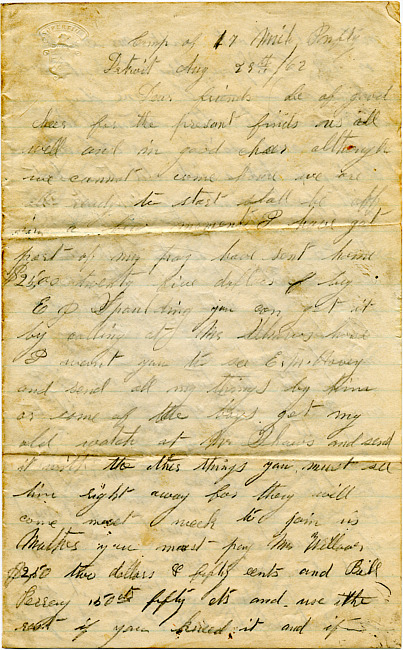 Camp of 17 Mich
Detroit Aug 29th / 62
Dear friends be of good
cheer for the present finds us all
well and in good cheer although
we cannot come home we are
ready to start shall be off
in a few moments I have got
part of my pay have sent home
$25.00 twenty five dollars by
E P Spaulding you can get it
by calling at Mr
I want you to see E. M. Hovey
and send all my things by him
or some of the boys get my
old watch at Mr and send
it with the other things you must see
him right away for they will
come next week to join us
Mother you must pay Mr
$2,50 two dollars & fifty cents and Bill
50cts fifty cts and use the
rest if you kneed it and if